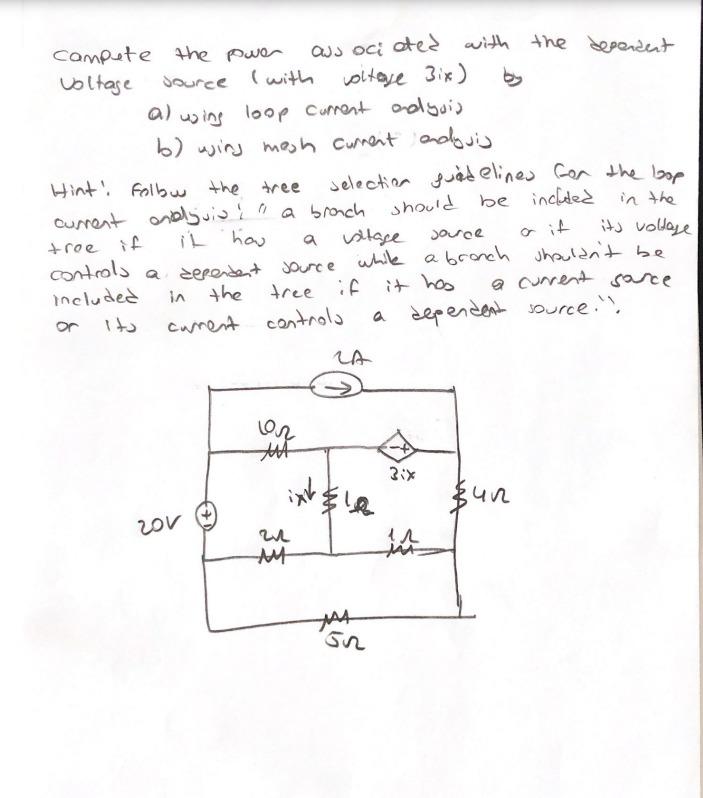 Compute the power associated with the dependent
voltage source (with voltage 3ix) by
a) using loop current analysis
b) using mesh current analysis
Hint: Follow the tree selection guidelines for the loop
current analysis: " a branch should be included in the
tree if it has a voltage source or if its voltage
controls a dependent source while a branch shouldn't be
included in the tree if it has a current source
or its current controls a dependent source.".
2A
10Ω
3ix
ix 1Ω 4Ω
20V
2Ω 1Ω
5Ω